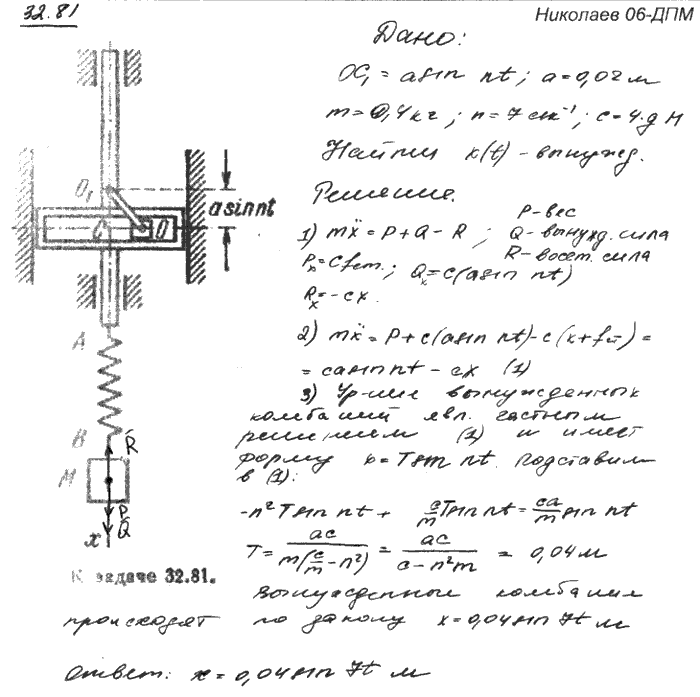 32.81
Николаев 06-ДПМ
Дано:
OC₁ = a sin nt; a = 0,02 м
m = 0,4 кг; n = 7 сек⁻¹; c = 4·g Н
Найти x(t) - вынужд.
Решение.
P - вес
1) mẍ = P + Q - R; Q - вынужд. сила
R - восст. сила
Pₓ = Cfст.; Qₓ = c(a sin nt)
Rₓ = -cx.
2) mẍ = P + c(a sin nt) - c(x + fст) =
= ca sin nt - cx (1)
3) Ур-ние вынужденных
колебаний явл. частным
решением (1) и имеет
форму x = T sin nt. Подставим
в (1):
-n²T sin nt + c/m T sin nt = ca/m sin nt
T = ac/(m(c/m - n²)) = ac/(c - n²m) = 0,04 м
Вынужденные колебания
происходят по закону x = 0,04 sin 7t м
Ответ: x = 0,04 sin 7t м
O₁
C
O
a sin nt
A
B
R
M
P
Q
x
К задаче 32.81.